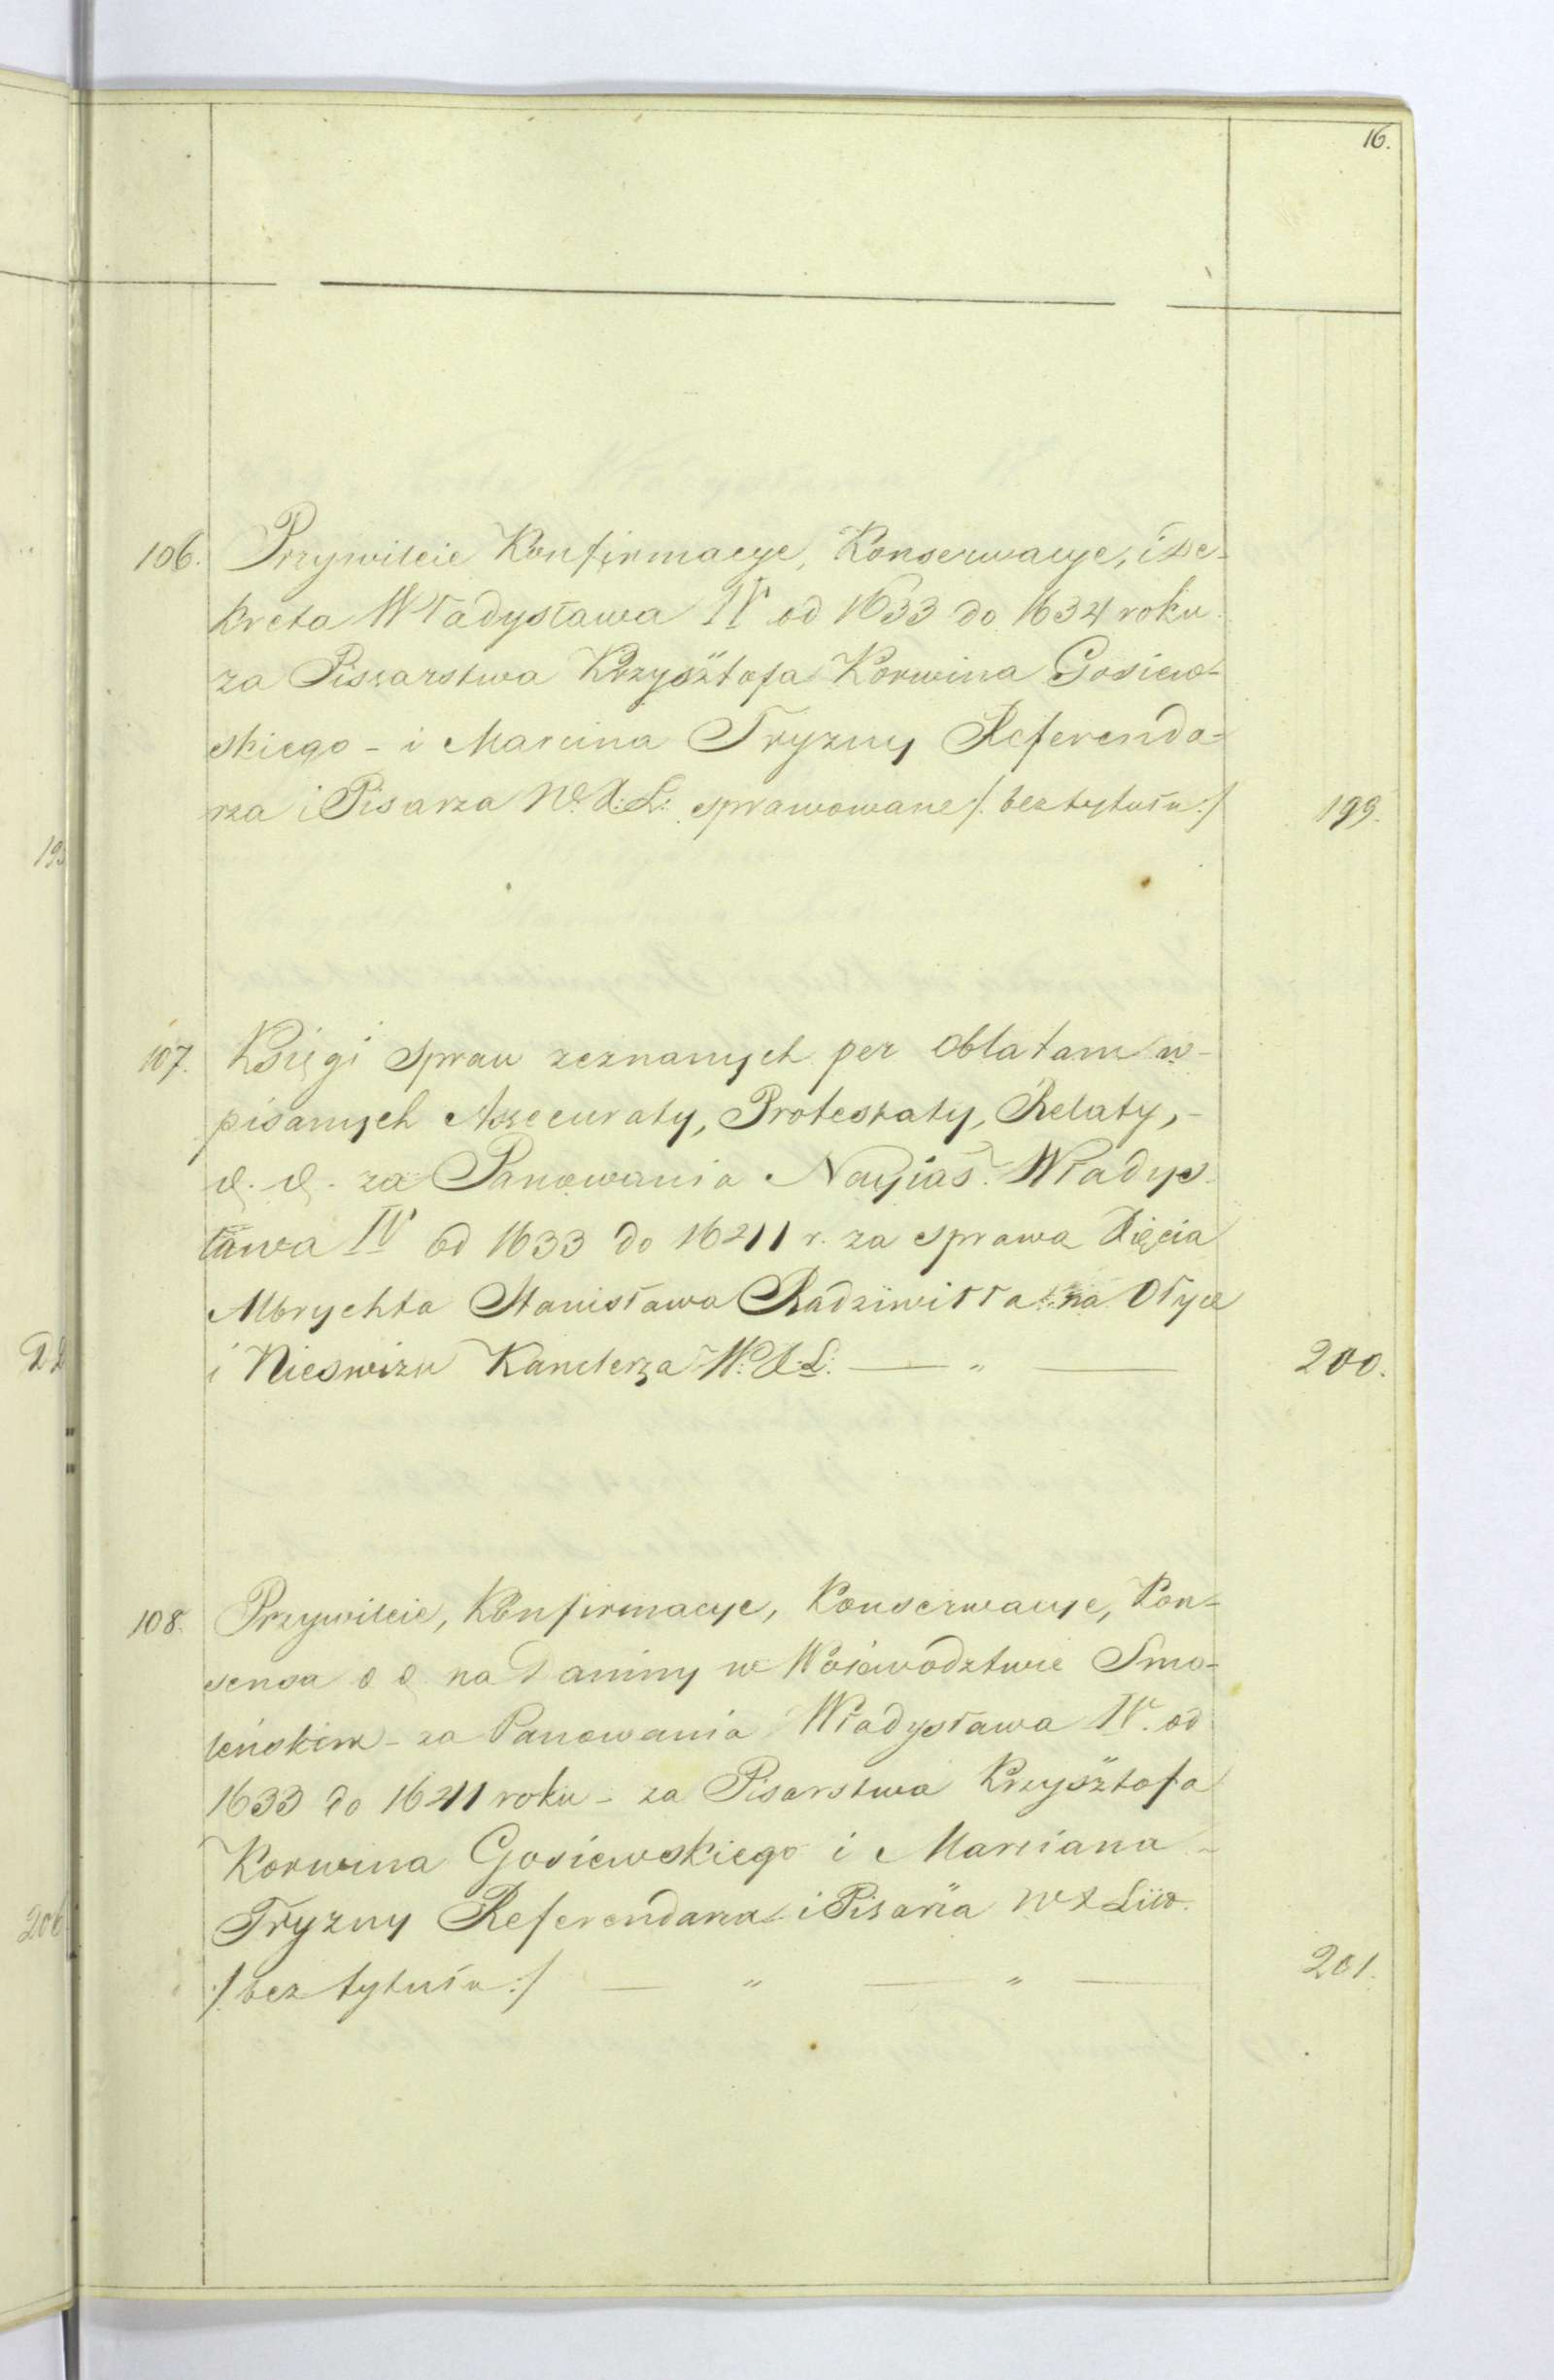 16.
106. Przywileie Konfirmacye, Konserwacye, i De-
kreta Władysława IV od 1633 do 1634 roku
za Pisarstwa Krzysztofa Korwina Gosiew-
skiego - i Marcina Tryzny Referenda-
rza i Pisarza W. X: L: sprawowane /: bez tytułu :/ 199.
107. Księgi Spraw zeznanych per Oblatam w-
pisanych Assecuraty, Protestaty, Relaty, -
za Panowania Nayias. Władys-
ława IV od 1633 do 1641 r. za sprawą Xięcia
Albrychta Stanisława Radziwiłła na Ołyce
i Nieswizu Kanclerza W: X: L: — „ — 200.
108. Przywileie, Konfirmacye, Konserwacye, Kon-
sensa na Daniny w Woiewodztwie Smo-
leńskim - za Panowania Władysława IV. od
1633 do 1641 roku - za Pisarstwa Krzysztofa
Korwina Gosiewskiego i Marciana -
Tryzny Referendarza i Pisarza W X Litt.
/: bez tytułu :/ — „ — „ — 201.